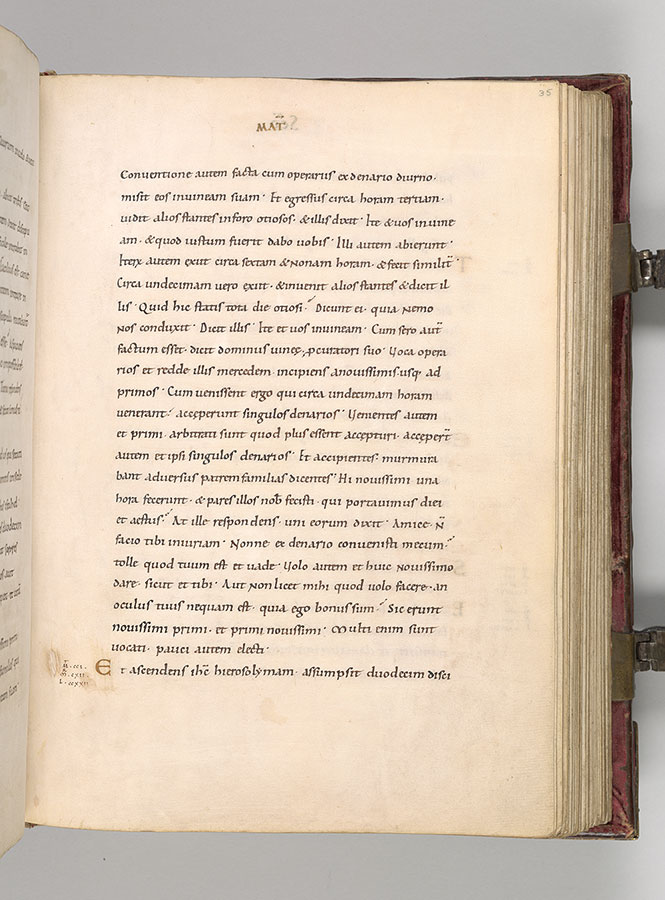 35
MAT̅
Conventione autem facta cum operariis ex denario diurno·
misit eos in vineam suam· Et egressus circa horam tertiam·
vidit alios stantes in foro otiosos· & illis dixit· Ite & vos in vine
am· & quod iustum fuerit dabo vobis· Illi autem abierunt·
Iteɽ autem exiit circa sextam & nonam horam· & fecit similit̅·
Circa undecimam vero exiit· & invenit alios stantes & dicit il
lis· Quid hic statis tota die otiosi· Dicunt ei· quia nemo
nos conduxit· Dicit illis· Ite et vos in vineam· Cum sero aut̅
factum esset· dicit dominus vineę ꝓcuratori suo· Voca opera
rios et redde illis mercedem· incipiens a novissimis usq· ad
primos· Cum venissent ergo qui circa undecimam horam
venerant· acceperunt singulos denarios· Venientes autem
et primi· arbitrati sunt quod plus essent accepturi· acceper̅t
autem et ipsi singulos denarios· Et accipientes· murmura
bant adversus patrem familias dicentes· Hi novissimi una
hora fecerunt· & pares illos nob̅ fecisti· qui portavimus diei
et aestus· At ille respondens· uni eorum dixit· Amice· n̅
facio tibi iniuriam· Nonne ex denario convenisti mecum·
tolle quod tuum est et vade· Volo autem et huic novissimo
dare· sicut et tibi· Aut non licet mihi quod volo facere· an
oculus tuus nequam est· quia ego bonus sum· Sic erunt
novissimi primi· et primi novissimi· Multi enim sunt
vocati· pauci autem electi·
Et ascendens ih̅c hierosolymam· assumpsit duodecim disci